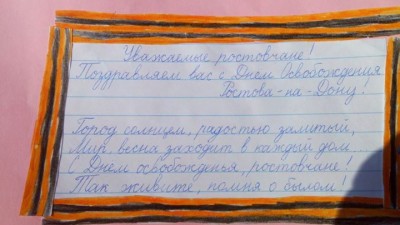 Уважаемые ростовчане!
Поздравляем вас с Днем Освобождения
Ростова-на-Дону!
Город солнцем, радостью залитый,
Мир, весна заходит в каждый дом...
С Днем освобожденья, ростовчане!
Так живите, помня о былом!